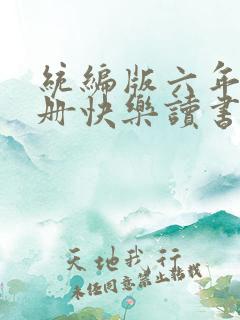 統編版六年
册快樂讀書
天地我行
未经同意禁止转载